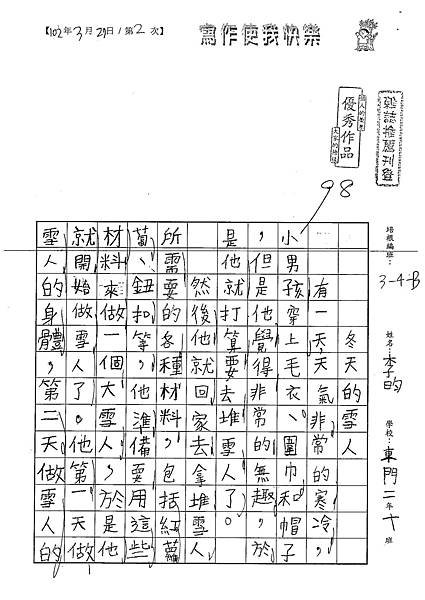 【102年3月29日/第2次】
寫作使我快樂
雜誌推薦刊登
優秀作品
98
培根編班：3-4-B 姓名：李昀 學校：東門二年十班
冬天的雪人
有一天天氣非常的寒冷，
小男孩穿上毛衣、圍巾和帽子
，但是他覺得非常的無趣，於
是他就打算要去堆雪人了。
然後他就回家去拿堆雪人
所需要的各種材料，包括紅蘿
蔔、鈕扣等，他準備要用這些
材料來做一個大雪人，於是他
就開始做雪人了。他第一天做
雪人的身體，第二天做雪人的